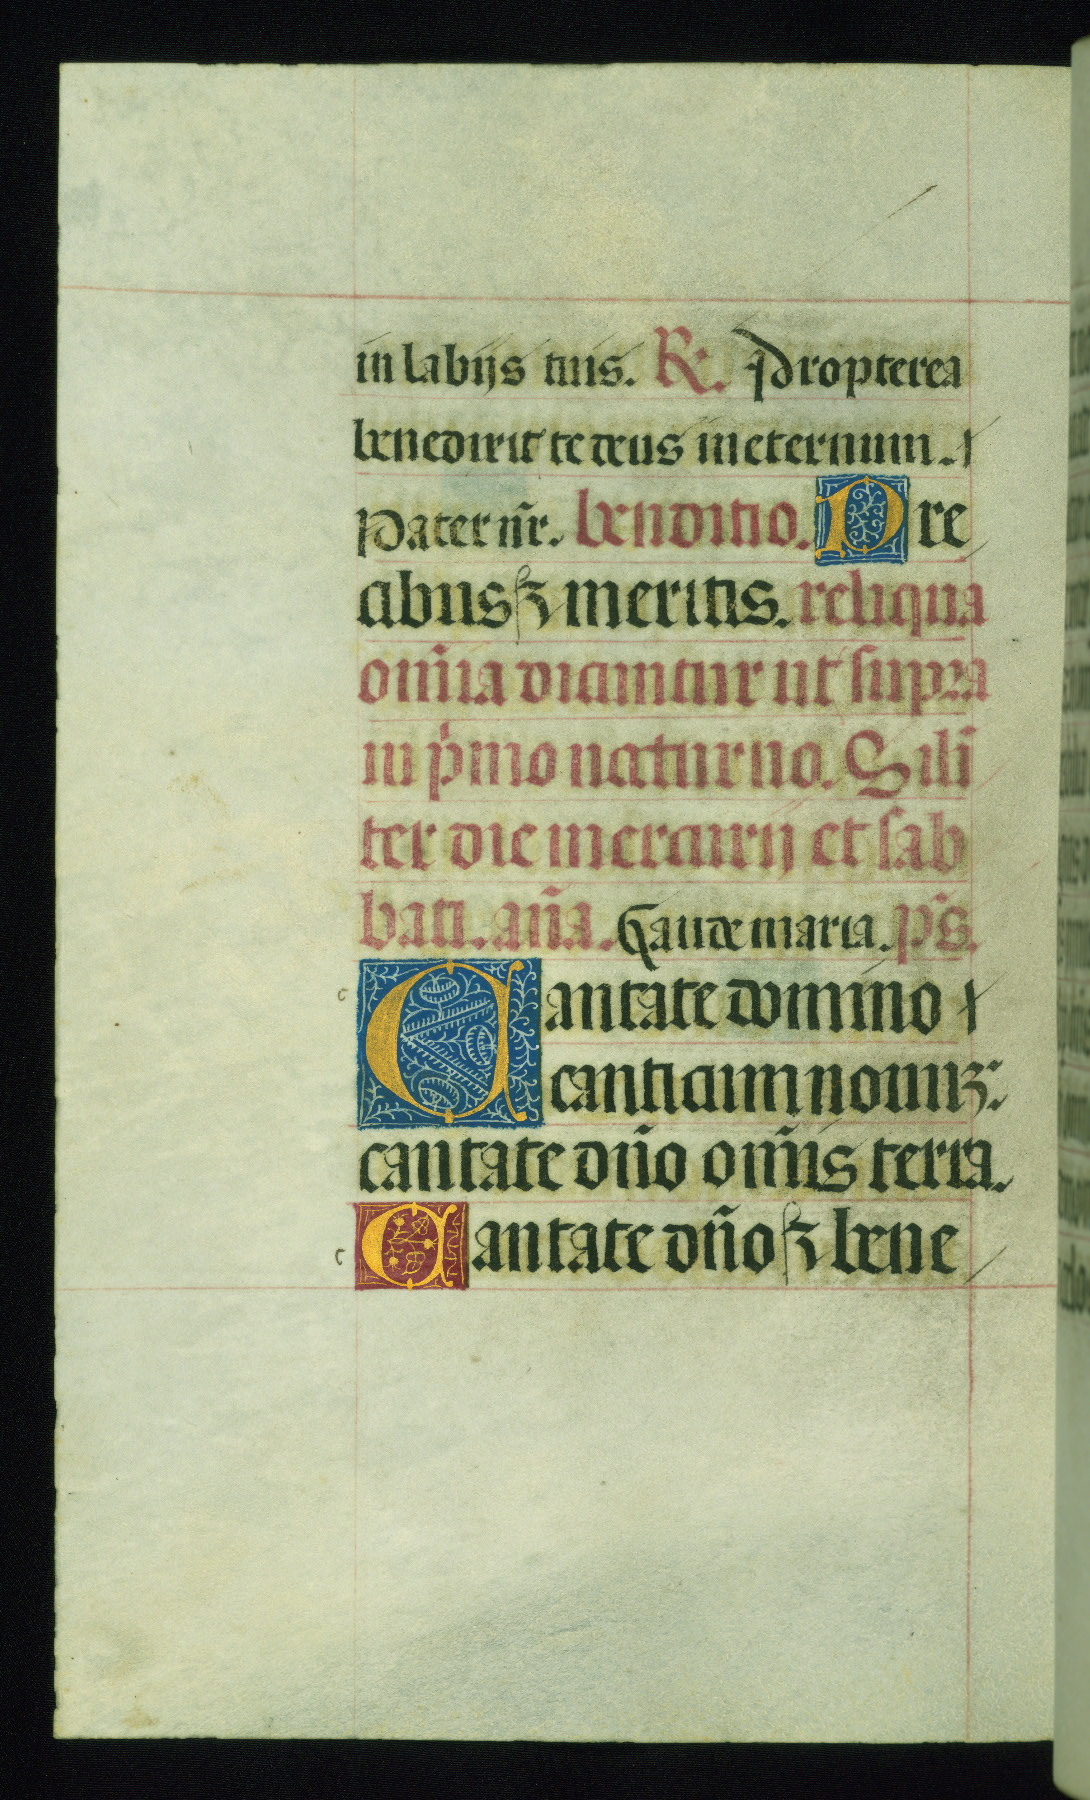 in labijs tuis. R. Propterea
benedixit te deus in eternum.
Pater nr̄. benditio. Pre
cibusꝫ meritis. reliqua
om̄ia dicuntur ut supra
in pͥmo nocturno. Sili̅
ter die mercurij et sab
bati. an̄a. Gaude maria. ps̄.
c Cantate domino
canticum nouuꝫ:
cantate dn̄o om̄is terra.
c Cantate dn̄o ꝫ bene